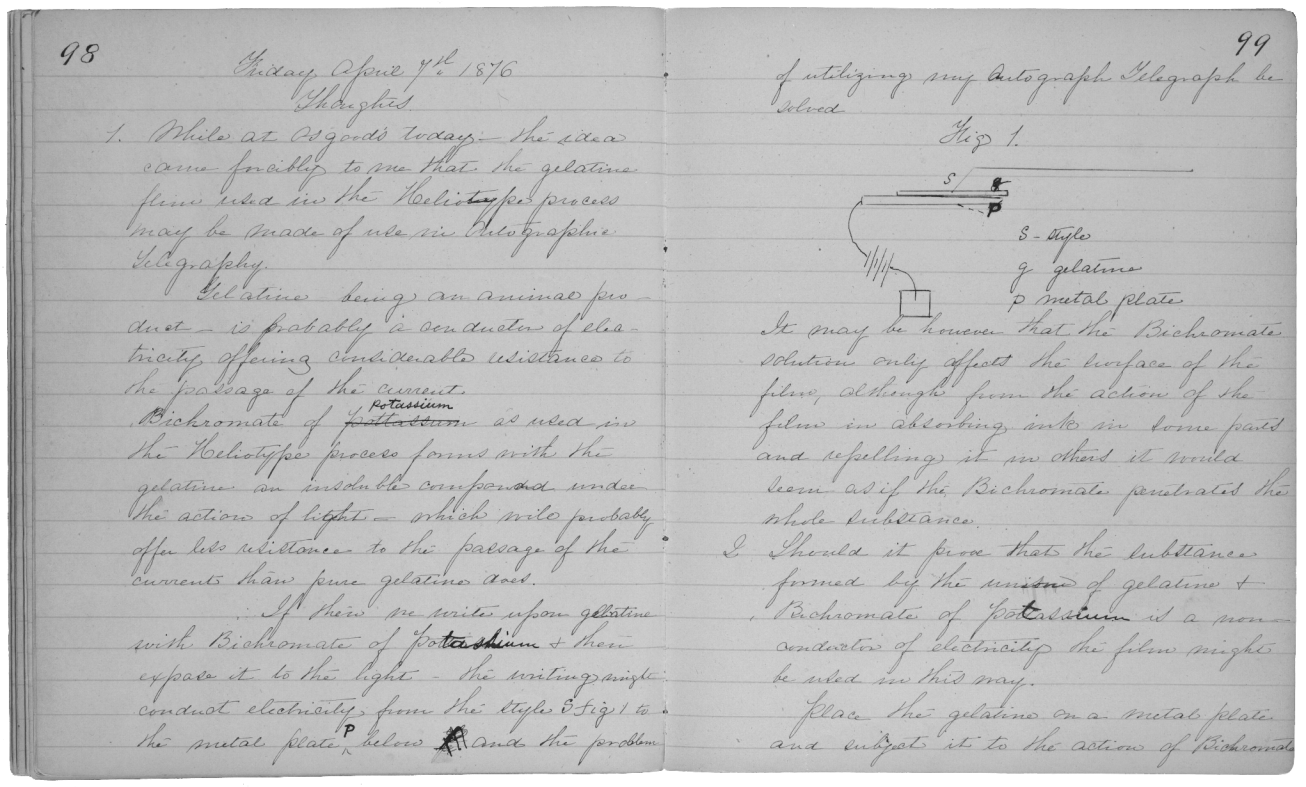 98
Friday April 7th 1876
Thoughts
1. While at Osgood's today — the idea
came forcibly to me that the gelatine
film used in the Heliotype process
may be made of use in Autographic
Telegraphy.
Gelatine being an animal pro-
duct — is probably a conductor of elec-
tricity offering considerable resistance to
the passage of the current.
potassium
Bichromate of pottassum as used in
the Heliotype process forms with the
gelatine an insoluble compound under
the action of light — which will probably
offer less resistance to the passage of the
current than pure gelatine does.
If then we write upon gelatine
with Bichromate of potassium & then
expose it to the light — the writing might
conduct electricity from the style S Fig 1 to
the metal plate P below and the problem
99
of utilizing my Autograph Telegraph be
solved
Fig 1.
S g
P
S - style
g gelatine
p metal plate
It may be however that the Bichromate
solution only affects the surface of the
film, although from the action of the
film in absorbing ink in some parts
and repelling it in others it would
seem as if the Bichromate penetrates the
whole substance.
2 Should it prove that the substance
formed by the union of gelatine &
Bichromate of potassium is a non-
conductor of electricity the film might
be used in this way.
Place the gelatine on a metal plate
and subject it to the action of Bichromate